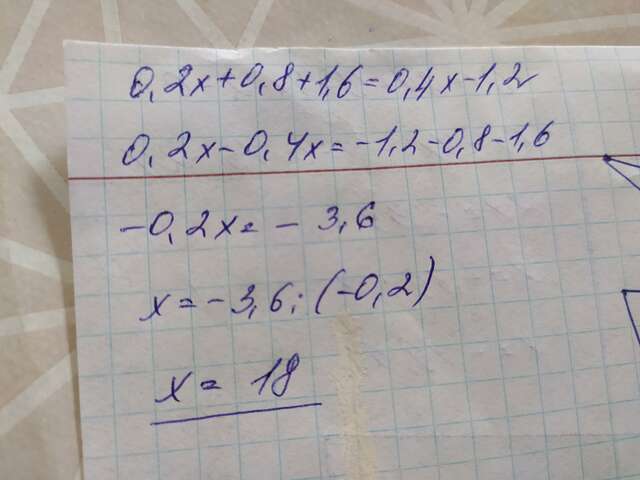 0,2x+0,8+1,6=0,4x-1,2
0,2x-0,4x=-1,2-0,8-1,6
-0,2x=-3,6
x=-3,6:(-0,2)
x=18